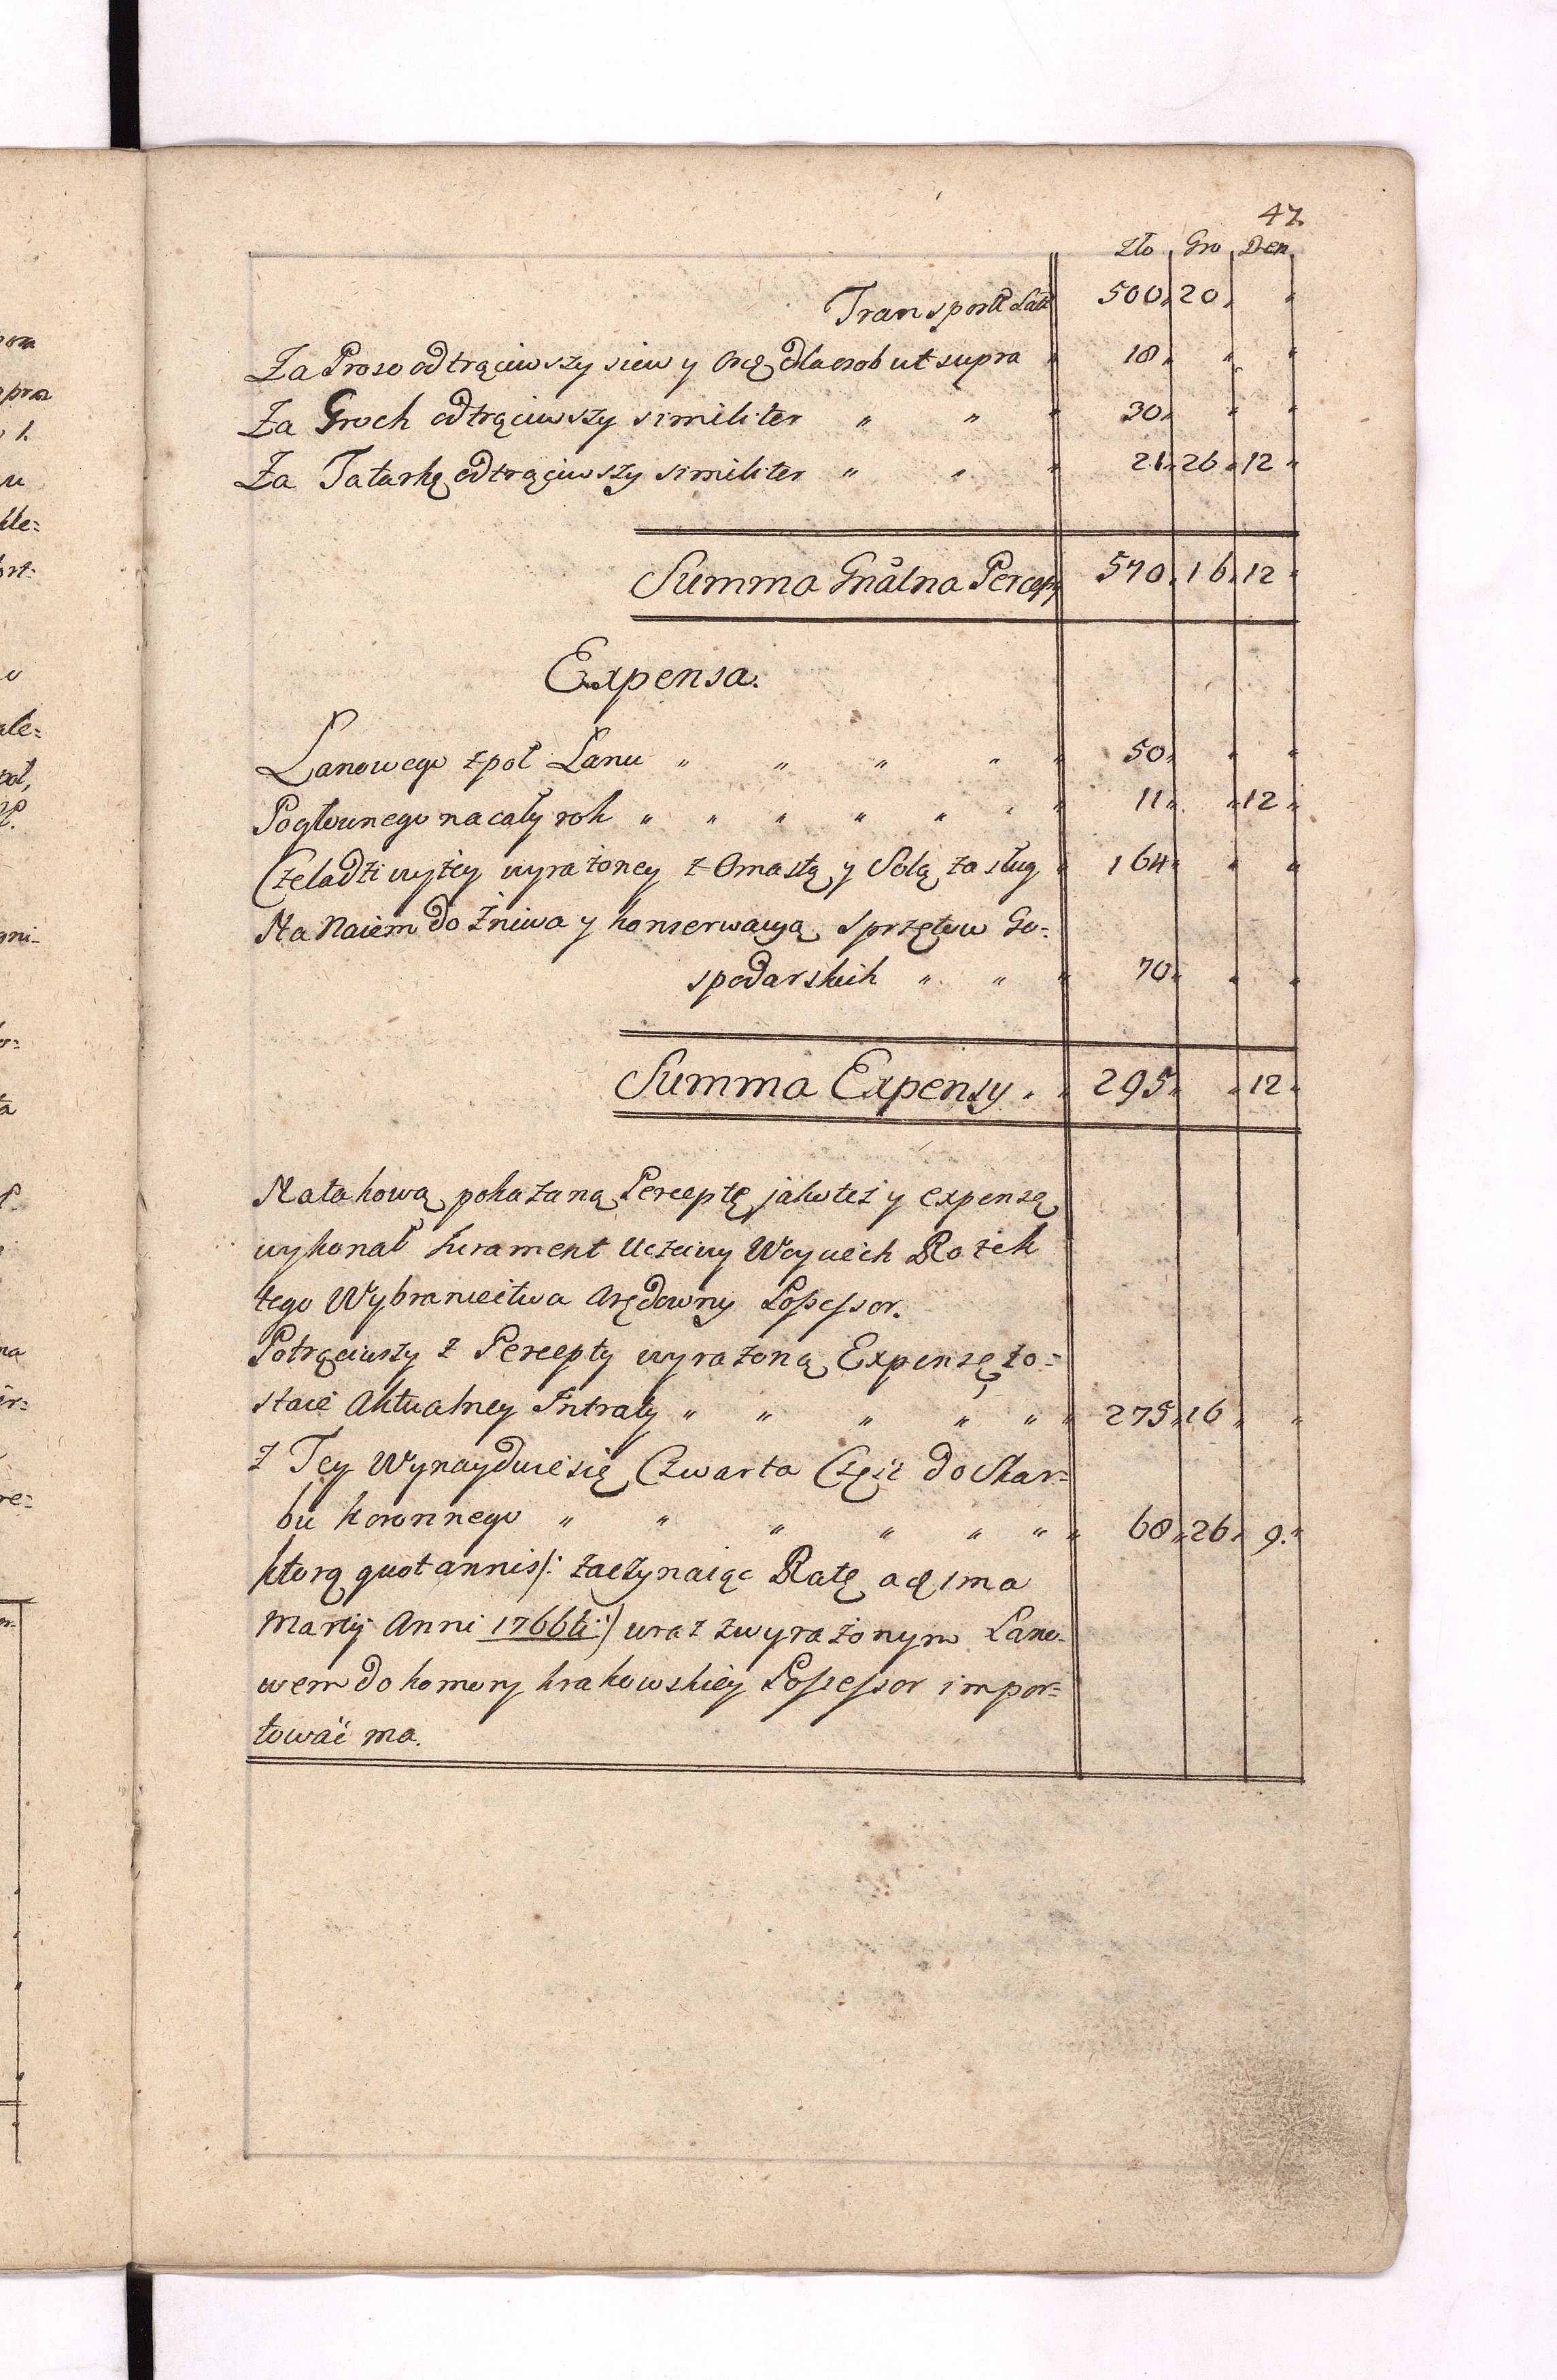 47.
Zło Gro Den
Transport Lat 500 20 "
Za Proso odtrąciwszy siew y Orą dla osob ut supra " 18 " "
Za Groch odtrąciwszy similiter " " " 30 " "
Za Tatarkę odtrąciwszy similiter " " " 21 26 12
Summa Gnãlna Percepty 570 16 12
Expensa.
Łanowego z poł Łanu " " " " " 50 " "
Pogłownego na cały rok " " " " " " " 11 " 12
Czeladzi wyżey wyrażoney z Omastą y Solą zasług " 164 " "
Na Naiem do Żniwa y konserwacyą Sprzętow Go=
spodarskich " " " 70 " "
Summa Expensy " " 295 " 12
Na takową pokazaną Perceptę jako też y expensę
wykonał Jurament Uczciwy Woyciech Rożek
tego Wybraniectwa Arędowny Possessor.
Potrąciwszy z Percepty wyrażoną Expensę zo=
staie Aktualney Intraty " " " " " " 275 16 "
Z Tey Wynayduie się Czwarta Część do Skar=
bu Koronnego " " " " " " " 68 26 9.
ktorą quotannis /: zaczynaiąc Ratę a d 1ma
Martij Anni 1766ti :/ wraz z wyrażonym Łano=
wem do komory krakowskiey Possessor impor=
tować ma.